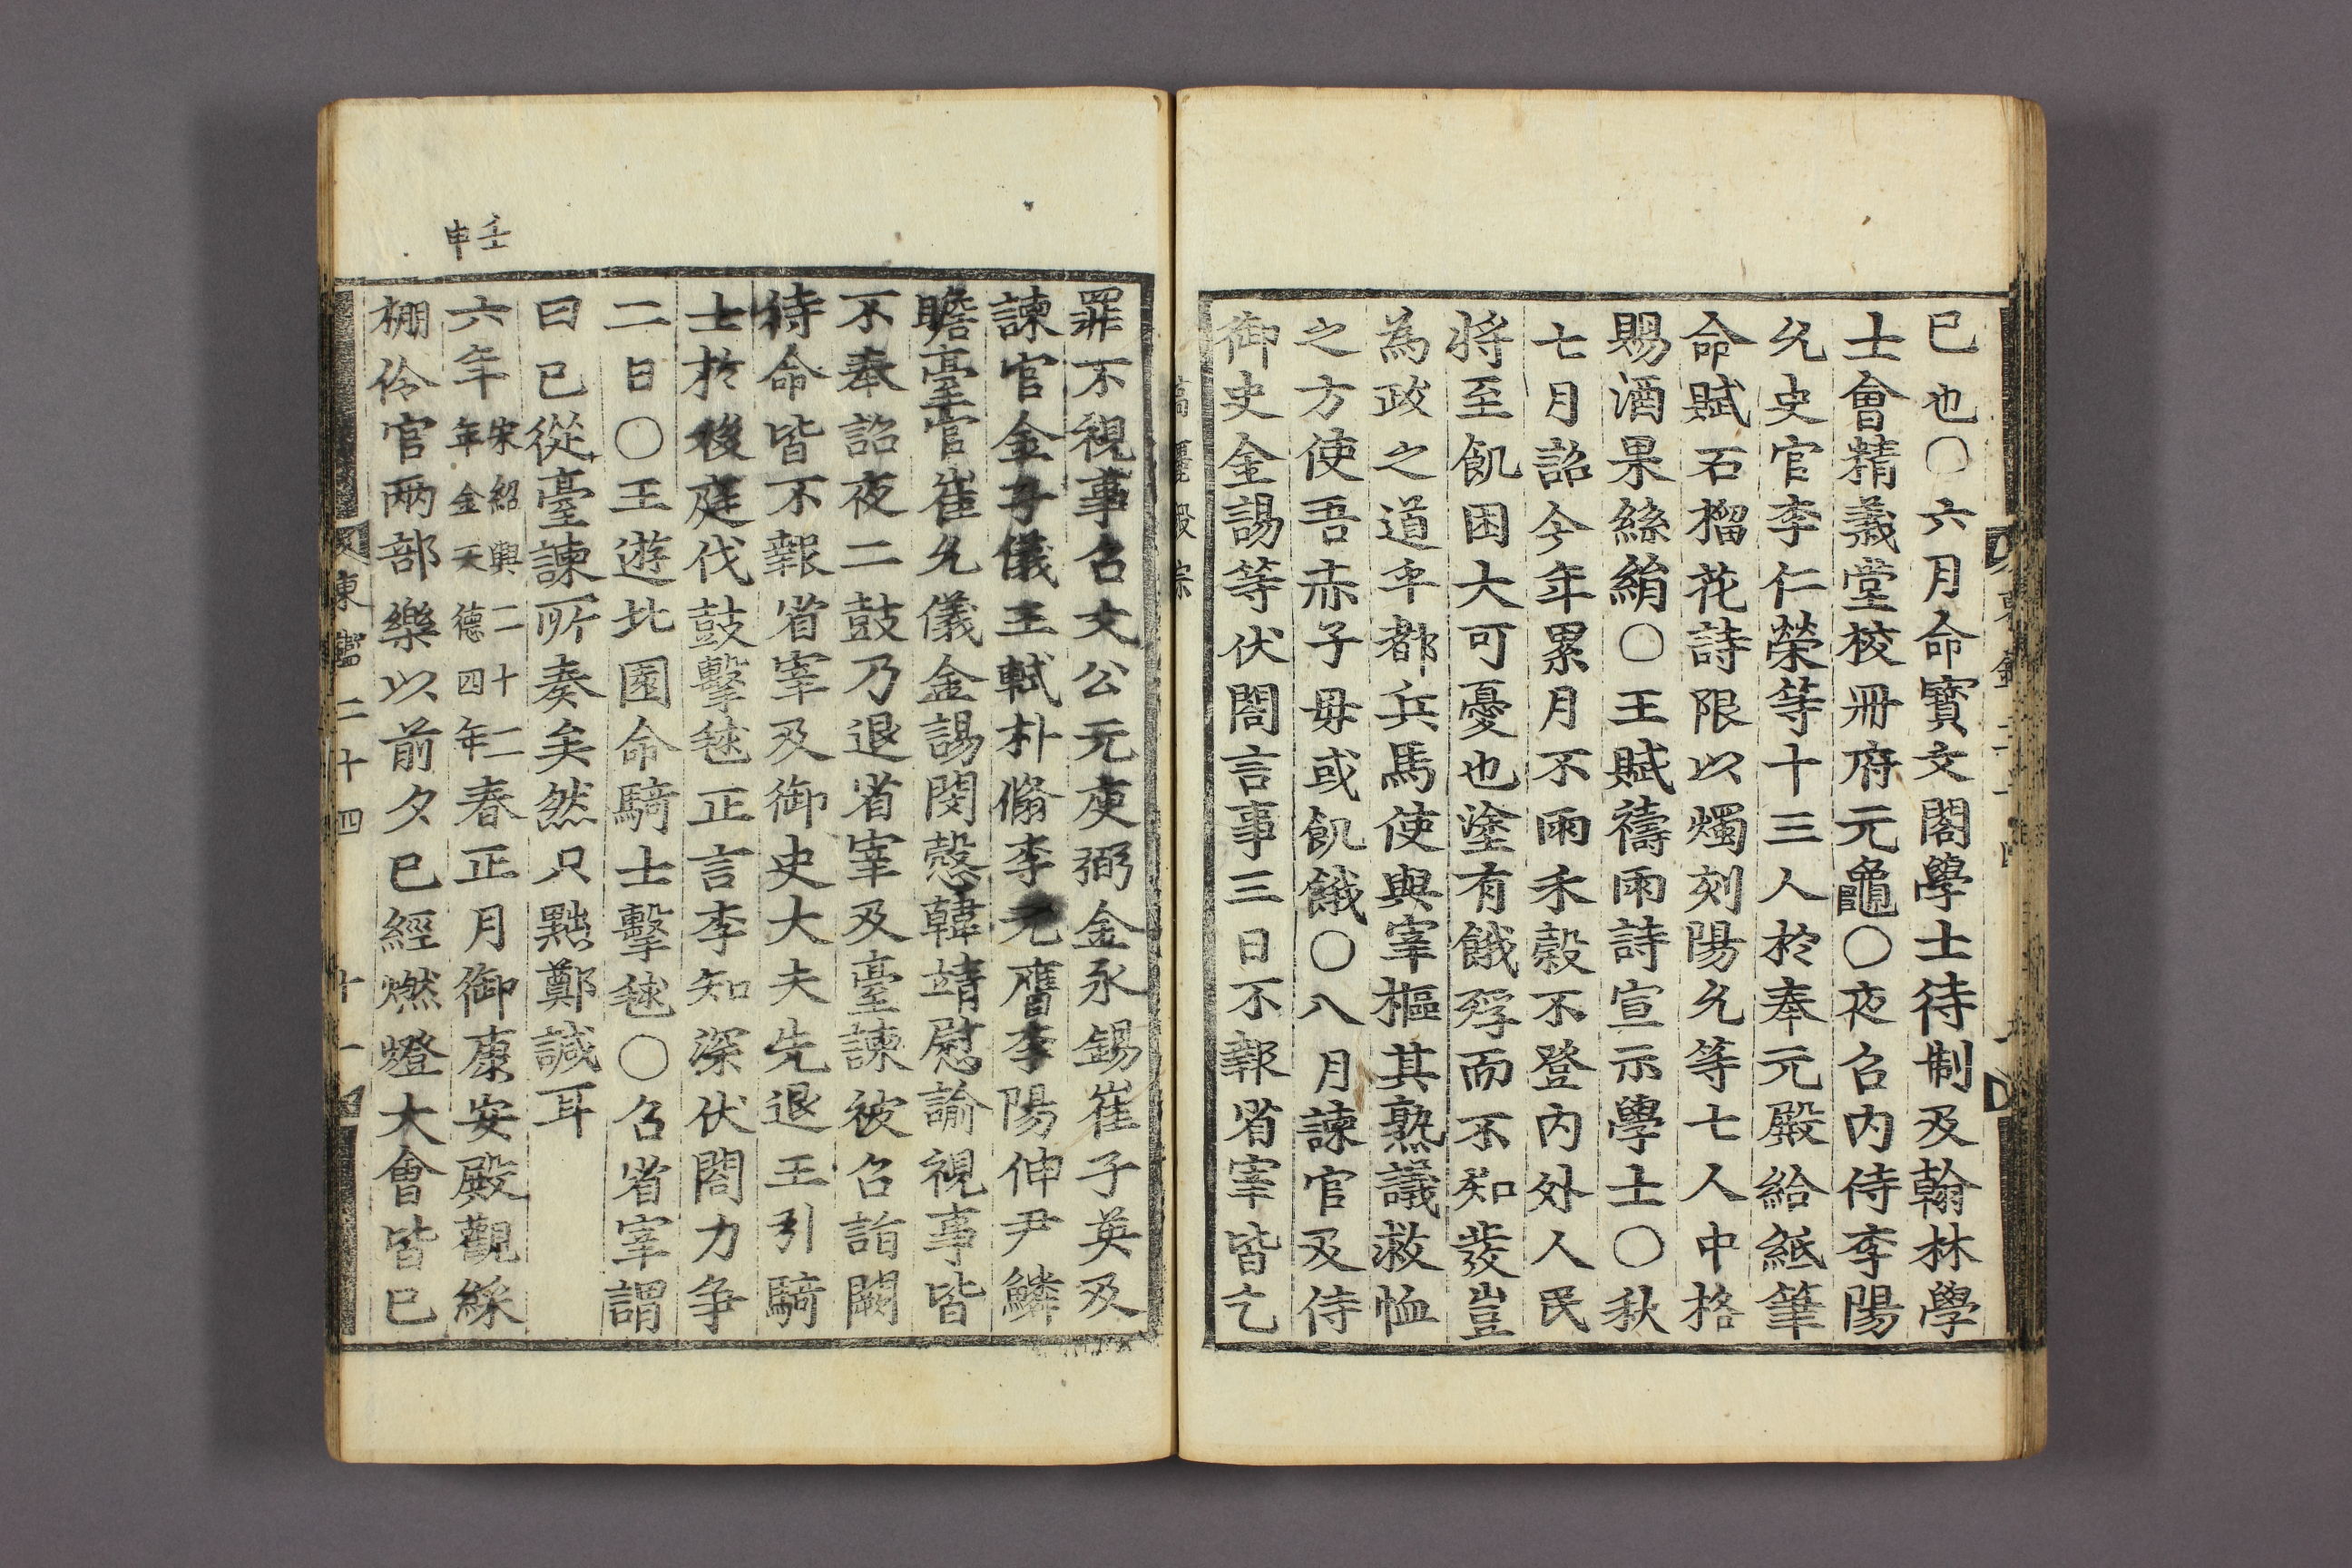 已也○六月命寶文閣學士待制及翰林學
士會精義堂校冊府元龜○夜召內侍李陽
允史官李仁榮等十三人於奉元殿給紙筆
命賦石榴花詩限以燭刻陽允等七人中格
賜酒果絲絹○王賦禱雨詩宣示學士○秋
七月詔今年累月不雨禾穀不登內外人民
將至飢困大可憂也塗有餓殍而不知發豈
為政之道乎都兵馬使與宰樞其熟議救恤
之方使吾赤子毋或飢餓○八月諫官及侍
御史金諹等伏閤言事三日不報省宰皆乞
高麗毅宗
罪不視事召文公元庾弼金永錫崔子英及
諫官金子儀王軾朴翛李元膺李陽伸尹鱗
瞻臺官崔允儀金諹閔慤韓靖慰諭視事皆
不奉詔夜二鼓乃退省宰及臺諫被召詣闕
待命皆不報省宰及御史大夫先退王引騎
士於後庭伐鼓擊毬正言李知深伏閤力爭
二日○王遊北園命騎士擊毬○召省宰謂
曰已從臺諫所奏矣然只黜鄭諴耳
壬申
六年宋紹興二十二年金天德四年春正月御康安殿觀綵
棚伶官兩部樂以前夕已經燃燈大會皆已
東鑑二十四 十一